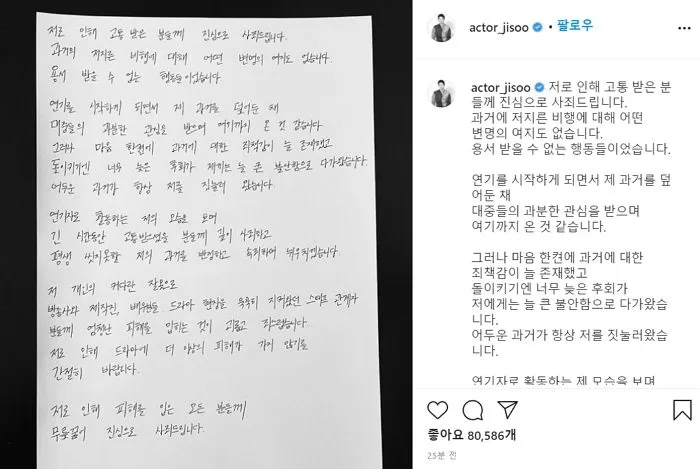 저로 인해 고통 받은 분들께 진심으로 사죄드립니다.
과거의 저지른 비행에 대해 어떤 변명의 여지도 없습니다.
용서 받을 수 없는 행동들이었습니다.
연기를 시작하게 되면서 제 과거를 덮어둔 채
대중들의 과분한 관심을 받으며 여기까지 온 것 같습니다.
그러나 마음 한켠에 과거에 대한 죄책감이 늘 존재했고
돌이키기엔 너무 늦은 후회가 제게는 늘 큰 불안함으로 다가왔습니다.
어두운 과거가 항상 저를 짓눌러 왔습니다.
연기자로 활동하는 저의 모습을 보며
긴 시간동안 고통받으셨을 분들께 깊이 사죄하고
평생 씻지못할 저의 과거를 반성하고 속죄하며 뉘우치겠습니다.
저 개인의 커다란 잘못으로
방송사와 제작진, 배우분들, 드라마 현장을 묵묵히 지켜왔던 스태프 관계자
분들께 엄청난 피해를 입히는 것이 괴롭고 죄스럽습니다.
저로 인해 드라마에 더 이상의 피해가 가지 않기를
간절히 바랍니다.
저로 인해 피해를 입은 모든 분들께
무릎꿇어 진심으로 사죄드립니다.
actor_jisoo • 팔로우
actor_jisoo 저로 인해 고통 받은 분
들께 진심으로 사죄드립니다.
과거에 저지른 비행에 대해 어떤
변명의 여지도 없습니다.
용서 받을 수 없는 행동들이었습니다.
연기를 시작하게 되면서 제 과거를 덮
어둔 채
대중들의 과분한 관심을 받으며
여기까지 온 것 같습니다.
그러나 마음 한켠에 과거에 대한
죄책감이 늘 존재했고
돌이키기엔 너무 늦은 후회가
저에게는 늘 큰 불안함으로 다가왔습
니다.
어두운 과거가 항상 저를 짓눌러왔습
니다.
연기자로 활동하는 제 모습을 보며
좋아요 80,586개
25분 전